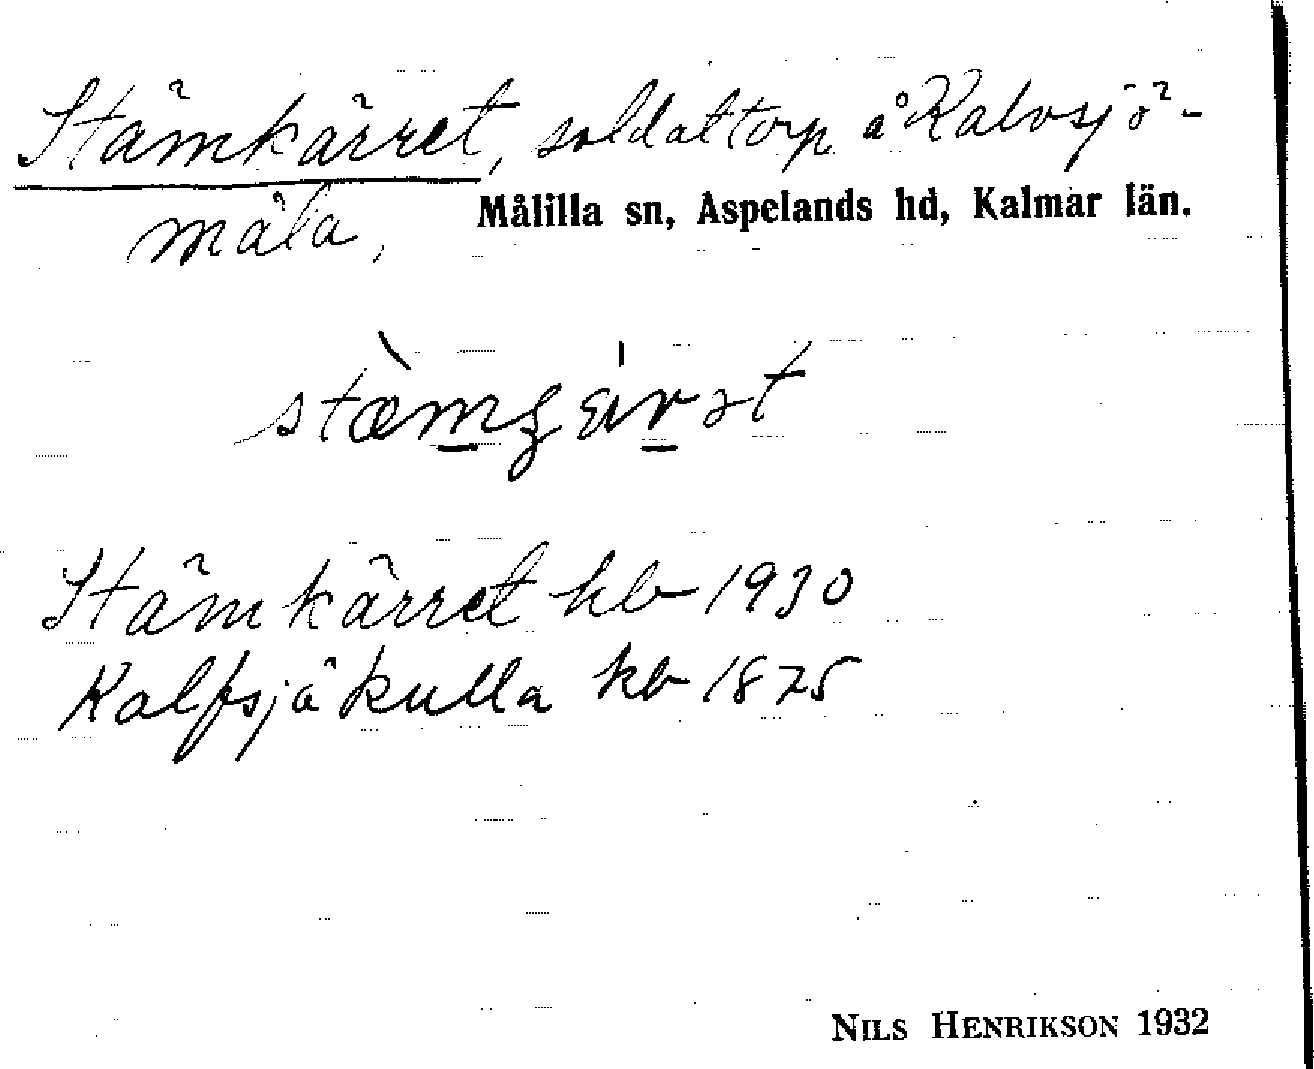 Stämkärret, soldattorp å Kalvsjö-
måla, Målilla sn, Aspelands hd, Kalmar län.
Stämkärret kb 1930
Kalfsjökulla kb 1875
NILS HENRIKSON 1932